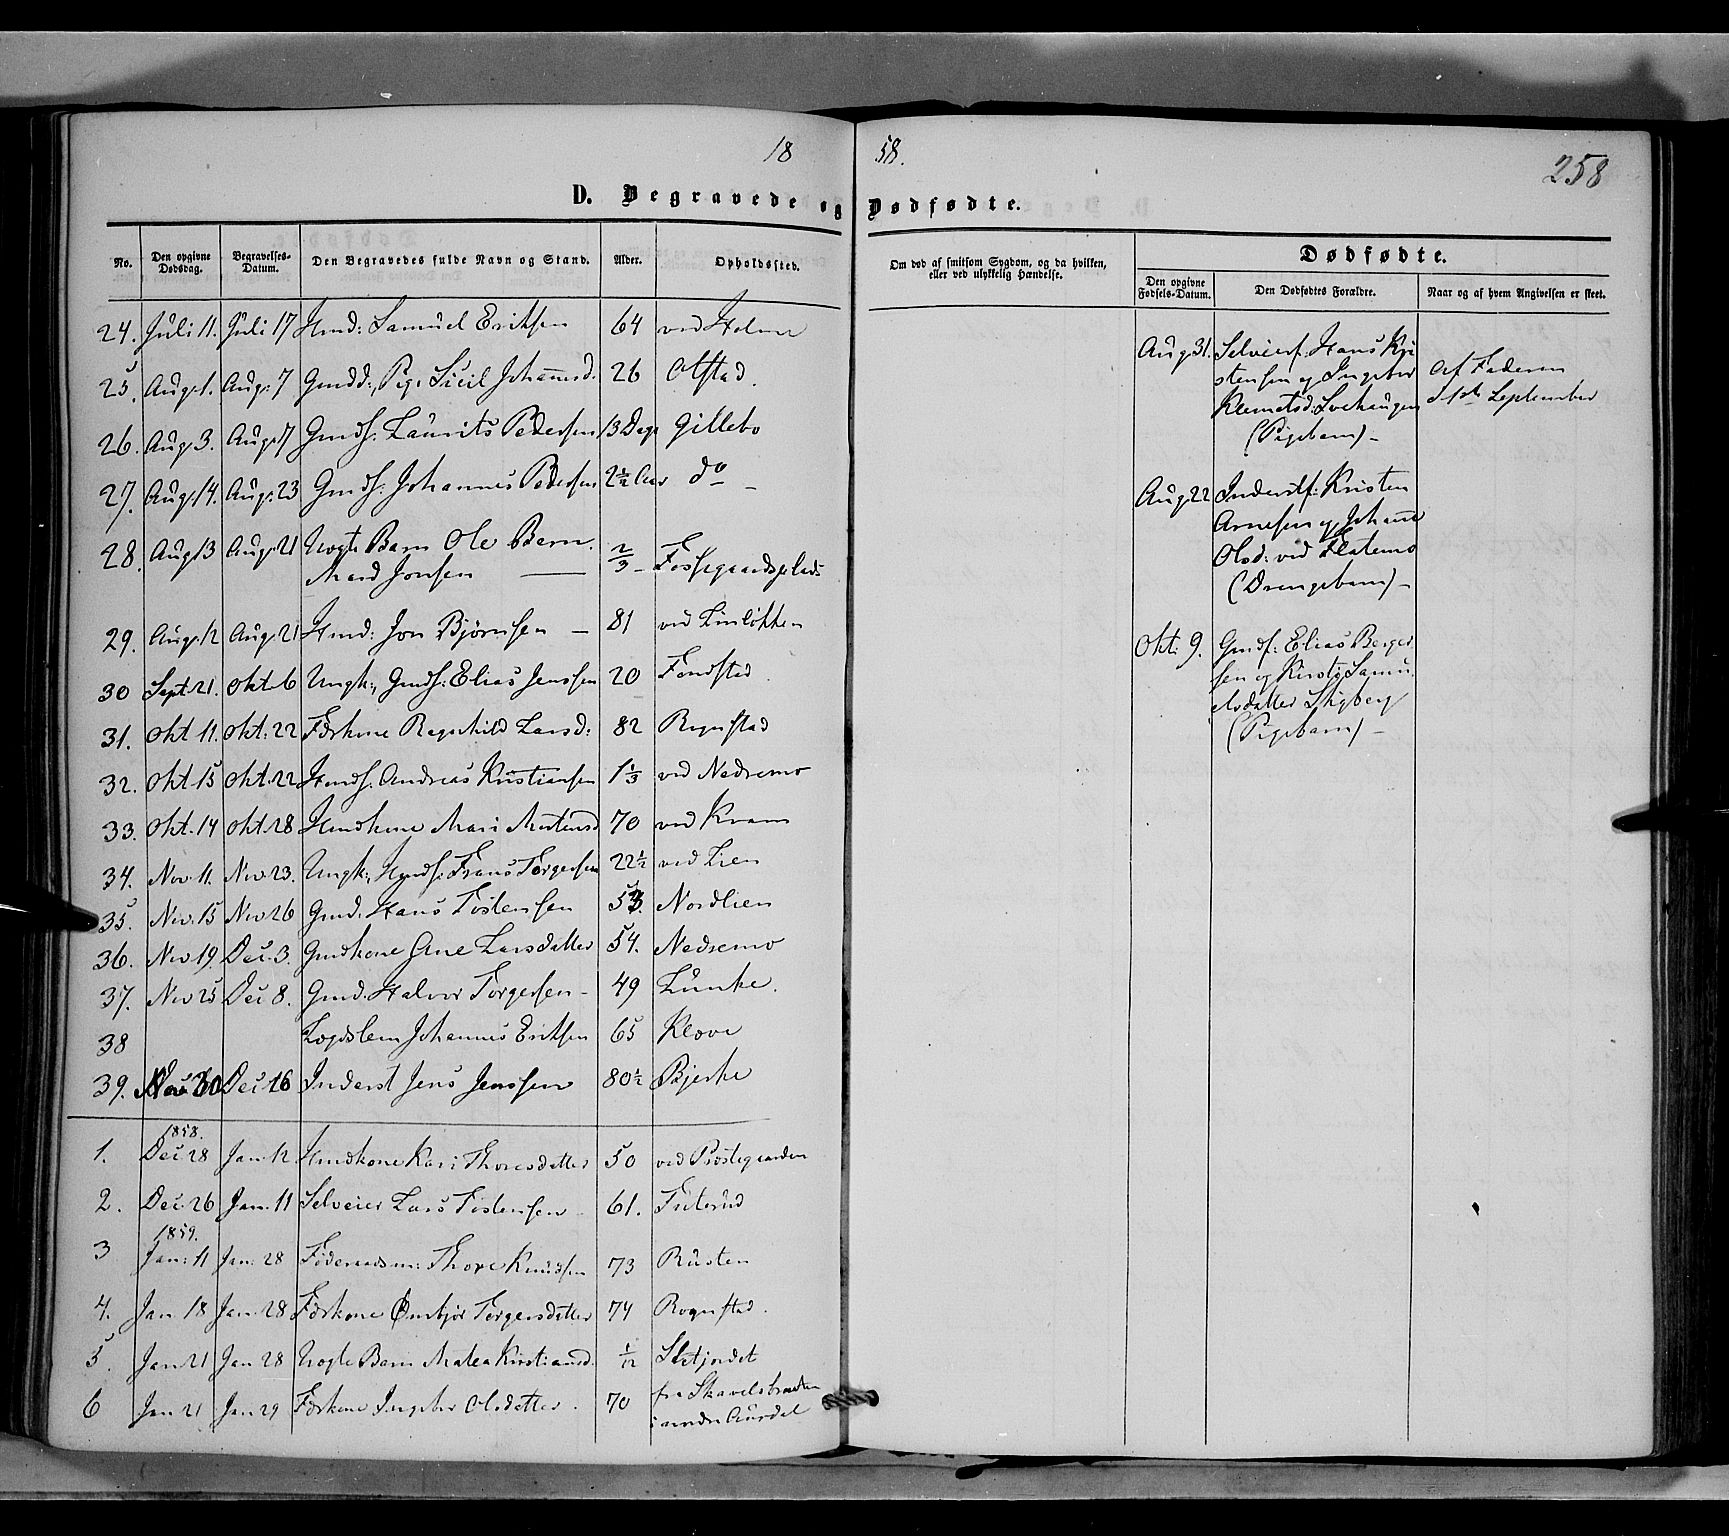 18 58.
258
D. Begravede og Dødfødte.
No. Den opgivne Dødsdag. Begravelses-Datum. Den Begravedes fulde Navn og Stand. Alder. Opholdssted. Om død af smitsom Sygdom, og da hvilken, eller ved ulykkelig Hændelse. Dødfødte.
Den opgivne Fødsels-Datum. Den Dødfødtes Forældre. Naar og af hvem Angivelsen er skeet.
24. Juli 11. Juli 17 Hmd: Samuel Eriksen 64 ved Holme
25. Aug. 1. Aug: 7 Gmdd:, Pige Sicil Johannesd. 26 Olstad.
26. Aug. 3. Aug. 7 Gmds. Laurits Pedersen 13 Dage Gillebo
27. Aug. 14. Aug. 23 Gmds. Johannes Pedersen 2½ Aar do
28. Aug 13 Aug. 21 Uægte Barn Ole Bern. 2/3
Mard Jonsen Fossegaardsplads
29. Aug. 12 Aug. 21 Hmd: Jon Bjørnsen 81 ved Linløkken
30 Sept. 21. Okt. 6 Ungk:, Gmds: Elias Jenssen 20 Fondstad
31. Okt 11. Okt. 22 Førkone Ragnhild Larsd: 82 Rognstad
32. Okt. 15 Okt. 22 Hmds. Andreas Kristiansen 1⅓ ved Nedremo
33. Okt. 14 Okt. 28 Hmdkone Mari Mortensd 70 ved Kvam
34. Nov. 11. Nov. 23. Ungk:, Hmds: Frans Torgersen 22½ ved Lien
35. Nov. 15 Nov 26 Gmd. Hans Tostensen 53. Nordlien
36. Nov 19. Dec. 3. Gmdkone Ane Larsdatter 54. Nedremo
37. Nov 25 Dec 8. Gmd. Halvor Torgersen 49 Lunke.
38 Lægdslem Johannes Eriksen 65 Kløve
39. Nov 30 Dec 16 Inderst Jens Jenssen 80½ Bjerke
1858.
1. Dec 28 Jan. 12 Hmdkone Kari Thoresdatter 50 ved Præstegaarden
2. Dec. 26 Jan. 11 Selveier Lars Tostensen 61. Futerud
1859.
3 Jan: 11 Jan: 28 Føderaadsm: Thore Knudsen 73 Rusten
4. Jan 18 Jan. 28 Førkone Ombjør Torgersdatter 74 Rognstad.
5. Jan 21 Jan 28 Uægte Barn Matea Kristiansd. 1/12 Sletjordet
6 Jan 21 Jan 29 Førkone Ingebor Olsdatter. 70 fra Skavelsbraaten
i nordre Aurdal
Aug. 31. Selveierf: Hans Kri
stensen og Ingebor Af Faderen
Klemetsd: Lochaugen d 1ste September
(Pigebarn)
Aug 22 Inderstf: Kristen
Arnesen og Johanne
Olsd: ved Flatemo
(Drengebarn)
Okt. 9. Gmdf: Elias Berger
sen og Kirsti Samu
elsdatter Stigberg
(Pigebarn)